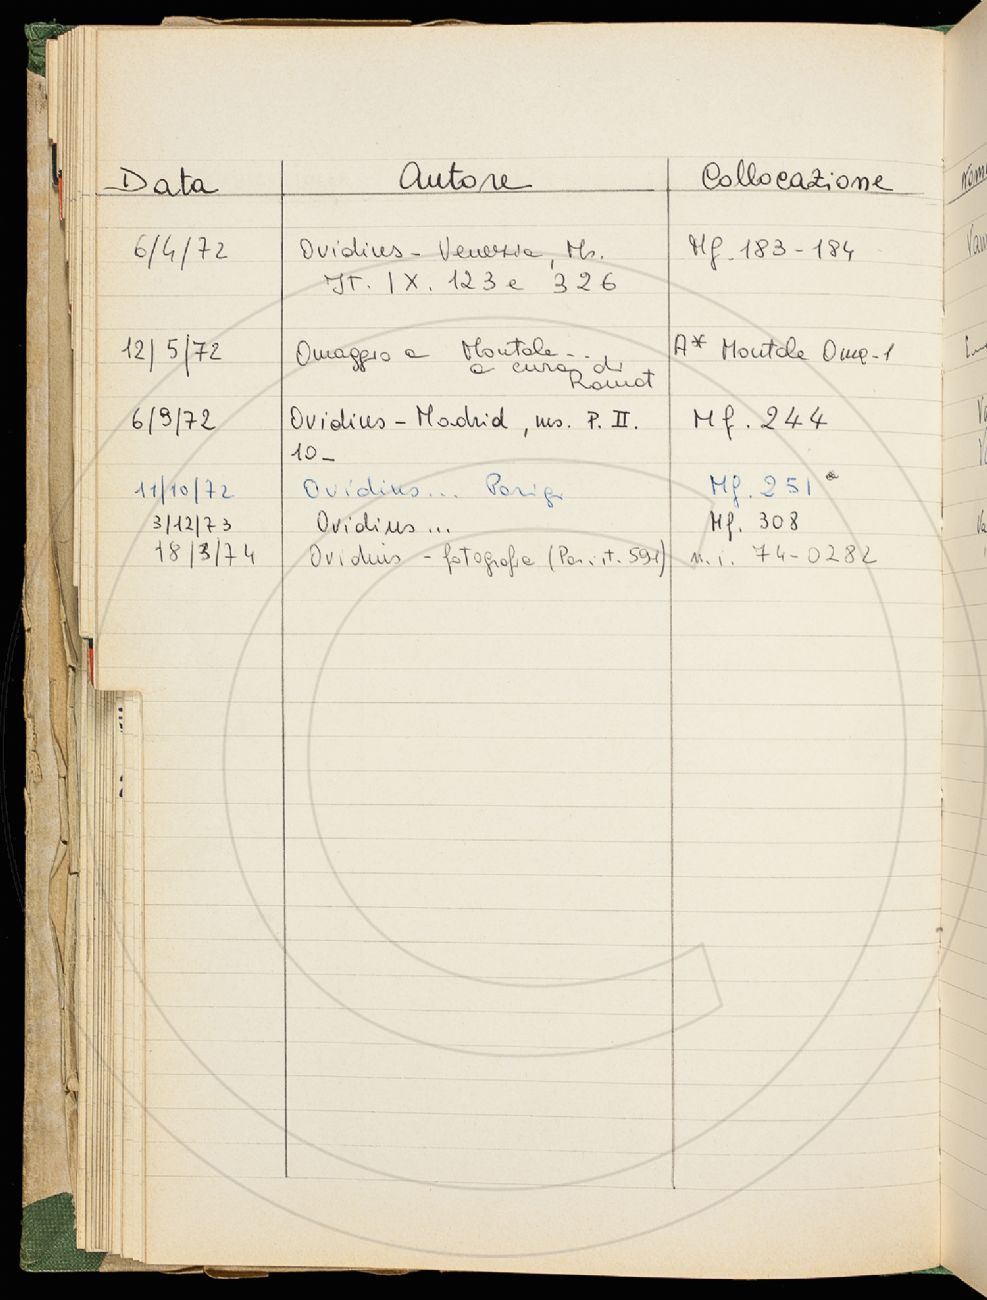 Data Autore Collocazione
6/4/72 Ovidius - Venezia, Ms. Mf. 183-184
It. IX. 123 e 326
12/5/72 Omaggio a Montale... A* Montale Oma-1
a cura di
Ramat
6/9/72 Ovidius - Madrid, ms. P. II. Mf. 244
10-
11/10/72 Ovidius... Parigi Mf. 251
3/12/73 Ovidius... Mf. 308
18/3/74 Ovidius - fotografie (Par. it. 591) n.i. 74-0282